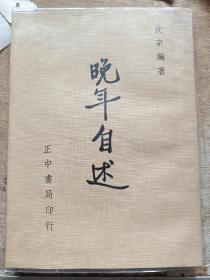 沈宗瀚著
晚年自述
正中書局印行